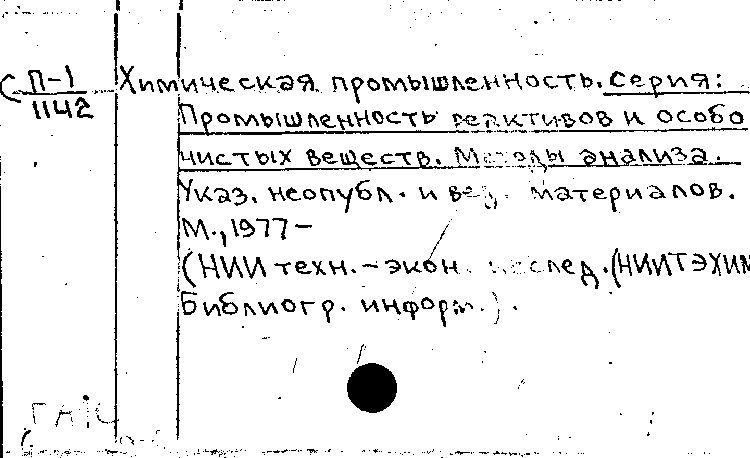 С П-1 Химическая промышленность. Серия:
1142 Промышленность реактивов и особо
чистых веществ. Методы анализа.
Указ. неопубл. и вед. материалов.
М., 1977-
(НИИ техн.-экон. исслед. (НИИТЭХИМ
Библиогр. информ.).